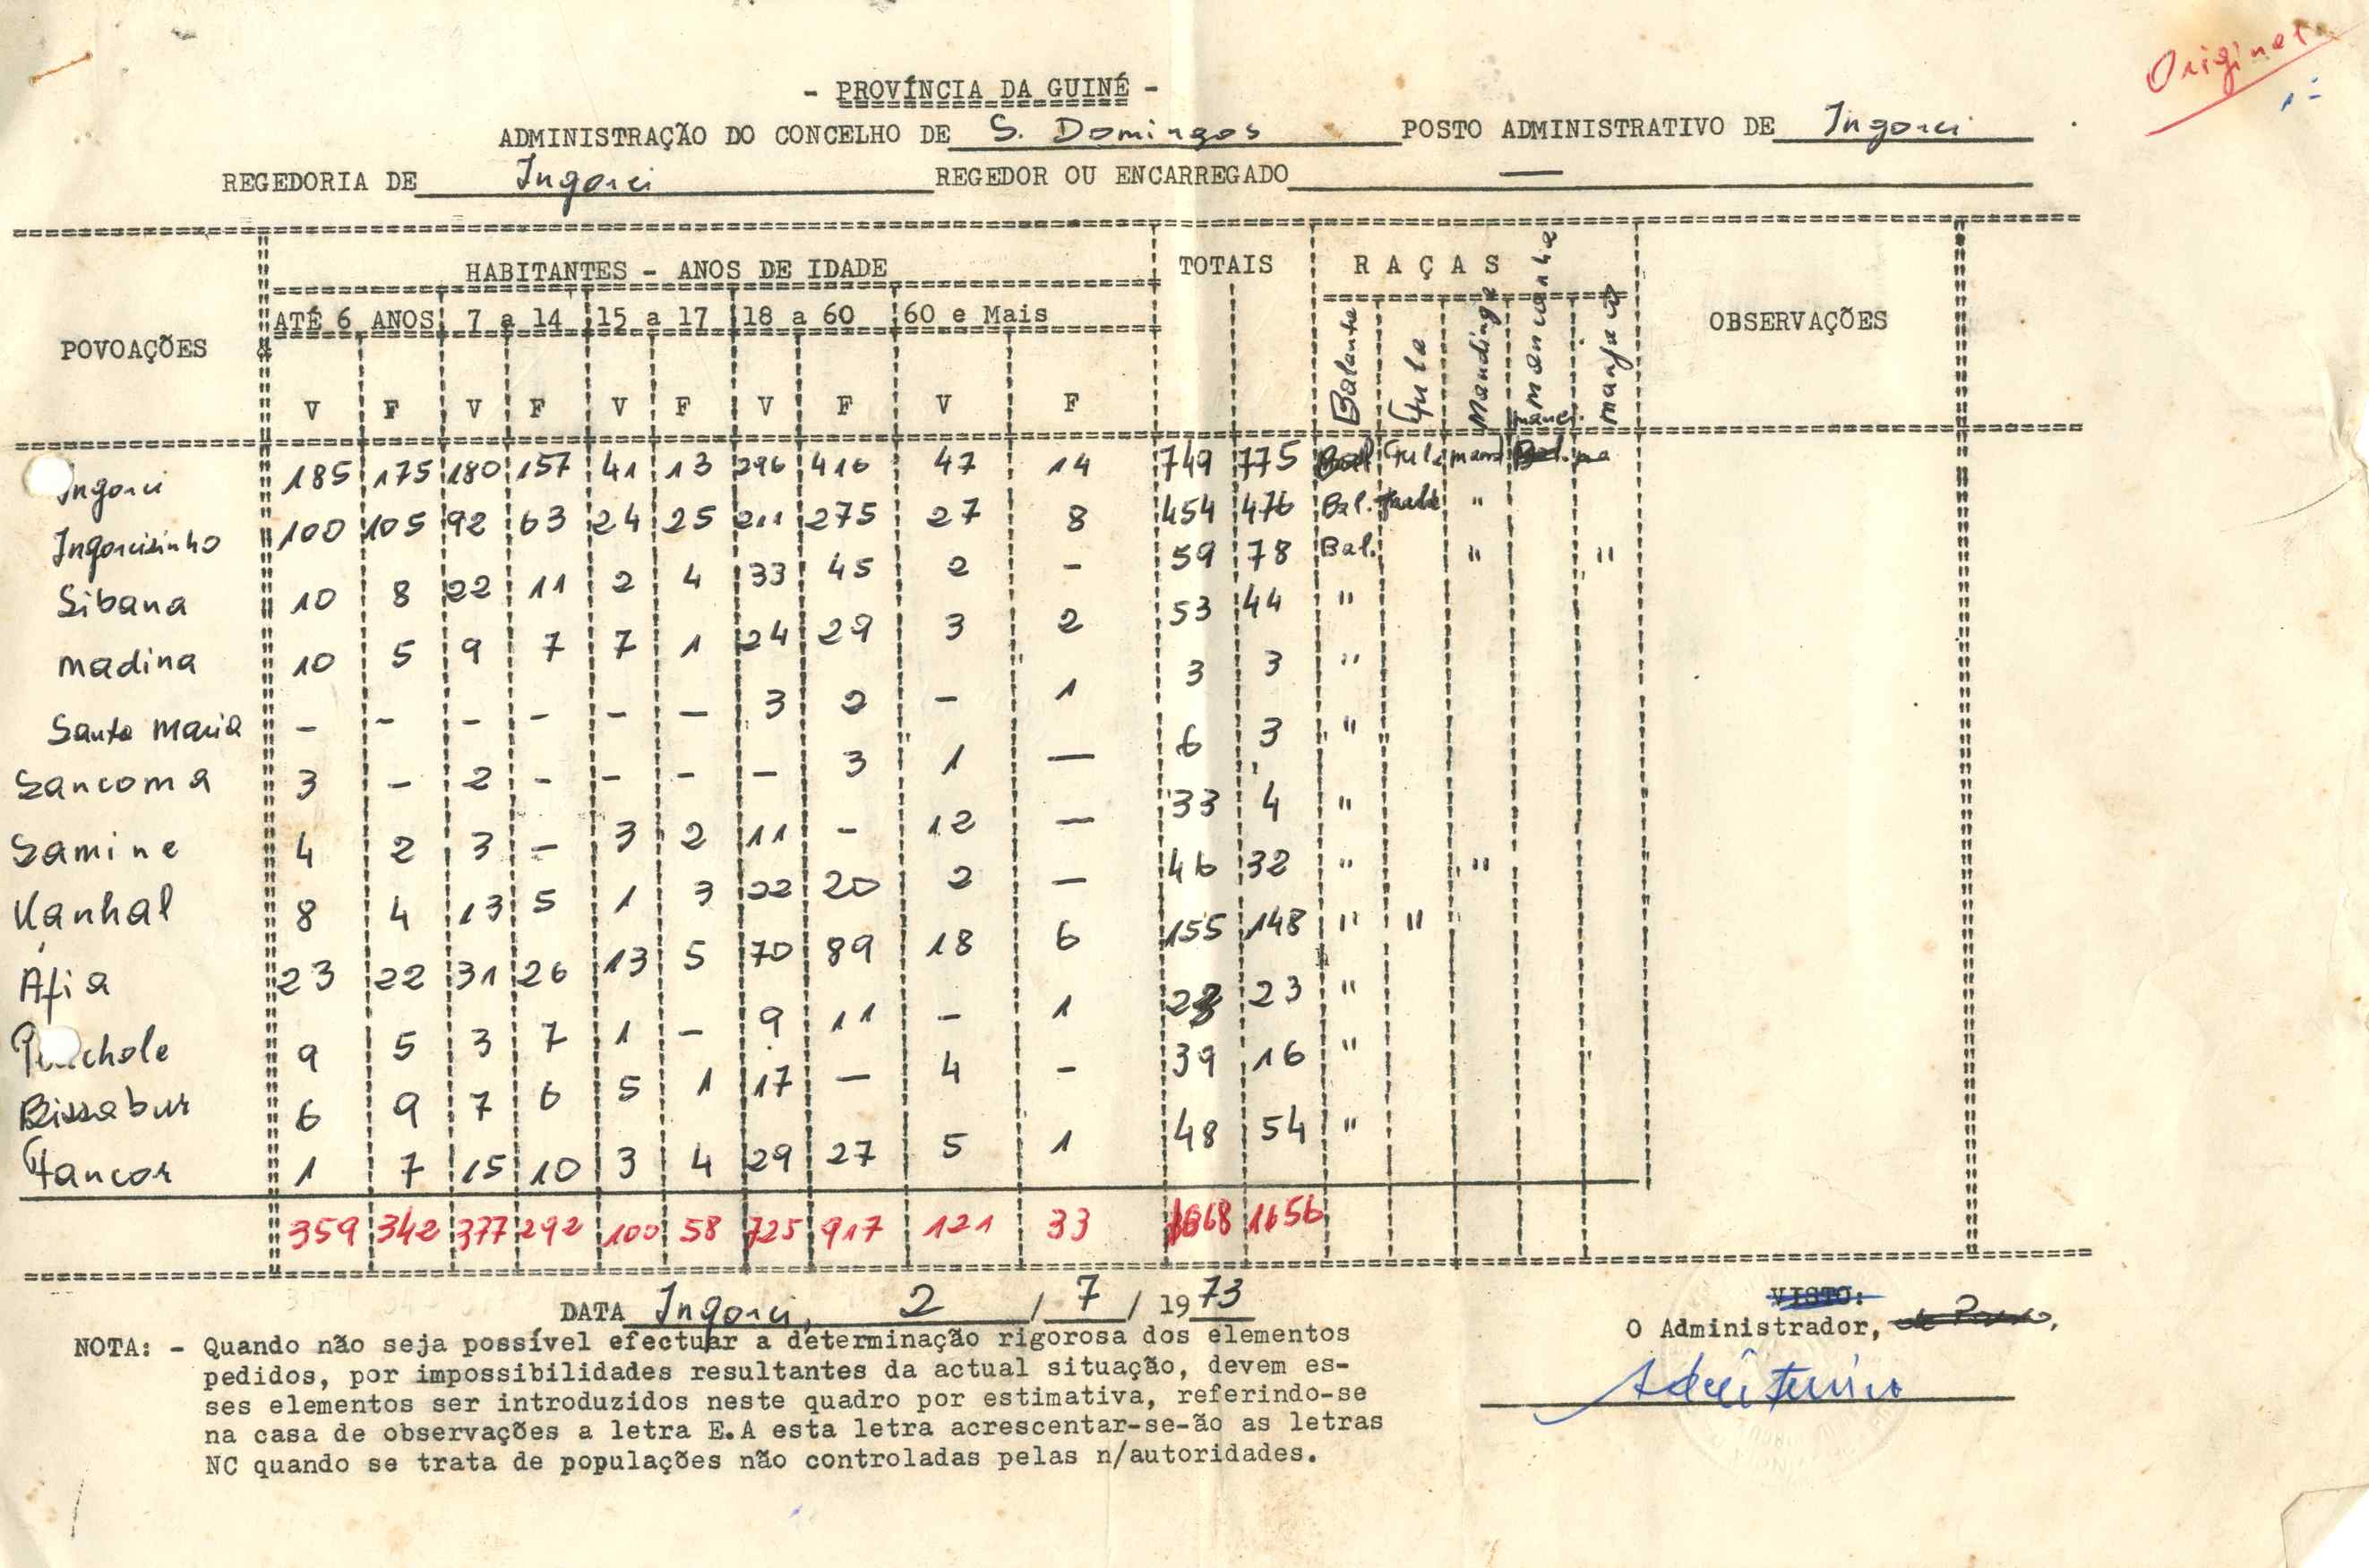 Original
1-
- PROVÍNCIA DA GUINÉ -
ADMINISTRAÇÃO DO CONCELHO DE S. Domingos POSTO ADMINISTRATIVO DE Ingorei
REGEDORIA DE Ingorei REGEDOR OU ENCARREGADO —
POVOAÇÕES HABITANTES - ANOS DE IDADE TOTAIS RAÇAS OBSERVAÇÕES
ATÉ 6 ANOS 7 a 14 15 a 17 18 a 60 60 e Mais
V F V F V F V F V F Balanta Fula Mandinga Mancanha Manjaco
Ingorei 185 175 180 157 41 13 296 416 47 14 749 775 Bal Fula mand
Ingoreizinho 100 105 92 63 24 25 211 275 27 8 454 476 Bal. "
Sibana 10 8 22 11 2 4 33 45 2 - 59 78 Bal. " "
Madina 10 5 9 7 7 1 24 29 3 2 53 44 "
Santa Maria - - - - - - 3 2 - 1 3 3 "
Sancoma 3 - 2 - - - - 3 1 — 6 3 "
Samine 4 2 3 - 3 2 11 - 12 — 33 4 "
Kanhal 8 4 13 5 1 3 22 20 2 — 46 32 " "
Áfia 23 22 31 26 13 5 70 89 18 6 155 148 " "
chole 9 5 3 7 1 - 9 11 - 1 23 "
Bissabur 6 9 7 6 5 1 17 — 4 - 39 16 "
Fancor 1 7 15 10 3 4 29 27 5 1 48 54 "
359 342 377 292 100 58 725 917 121 33 1668 1656
DATA Ingorei, 2 / 7 / 1973
VISTO:
O Administrador,
NOTA: - Quando não seja possível efectuar a determinação rigorosa dos elementos
pedidos, por impossibilidades resultantes da actual situação, devem es-
ses elementos ser introduzidos neste quadro por estimativa, referindo-se
na casa de observações a letra E.A esta letra acrescentar-se-ão as letras
NC quando se trata de populações não controladas pelas n/autoridades.